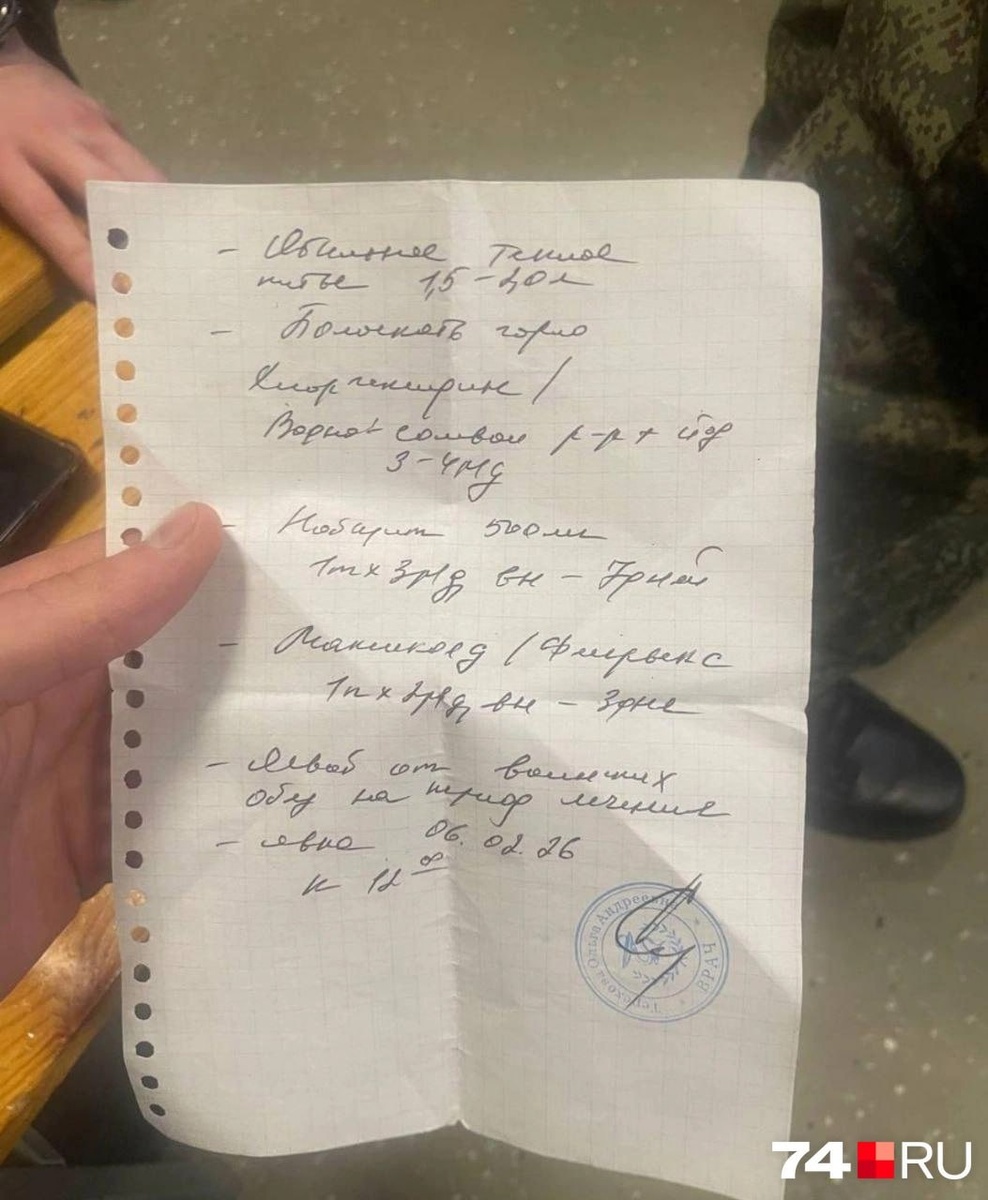 - Обильное теплое
питье 1,5-2,0л
- Полоскать горло
Хлоргексидин /
Водно солевой р-р + йод
3-4рд
- 500мг
1т х 3рд вн - 7дней
- Максиколд / Фигрыпс
1п х 2рд вн - 3дне
- Освоб от воинских
обяз на период лечения
- явка 06.02.26
к 12 00
Терехова Ольга Андреевна
ВРАЧ
74 RU